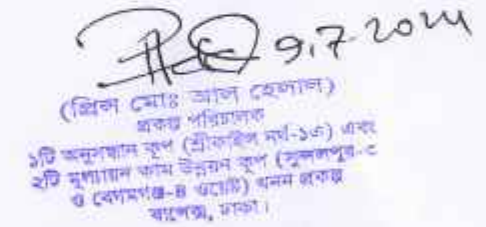 9.7.2024
(প্রিন্স মোঃ আল হেলাল)
প্রকল্প পরিচালক
১টি অনুসন্ধান কূপ (শ্রীকাইল নর্থ-১এ) এবং
২টি মূল্যায়ন কাম উন্নয়ন কূপ (সুন্দলপুর-৩
ও বেগমগঞ্জ-৪ ওয়েস্ট) খনন প্রকল্প
বাপেক্স, ঢাকা।